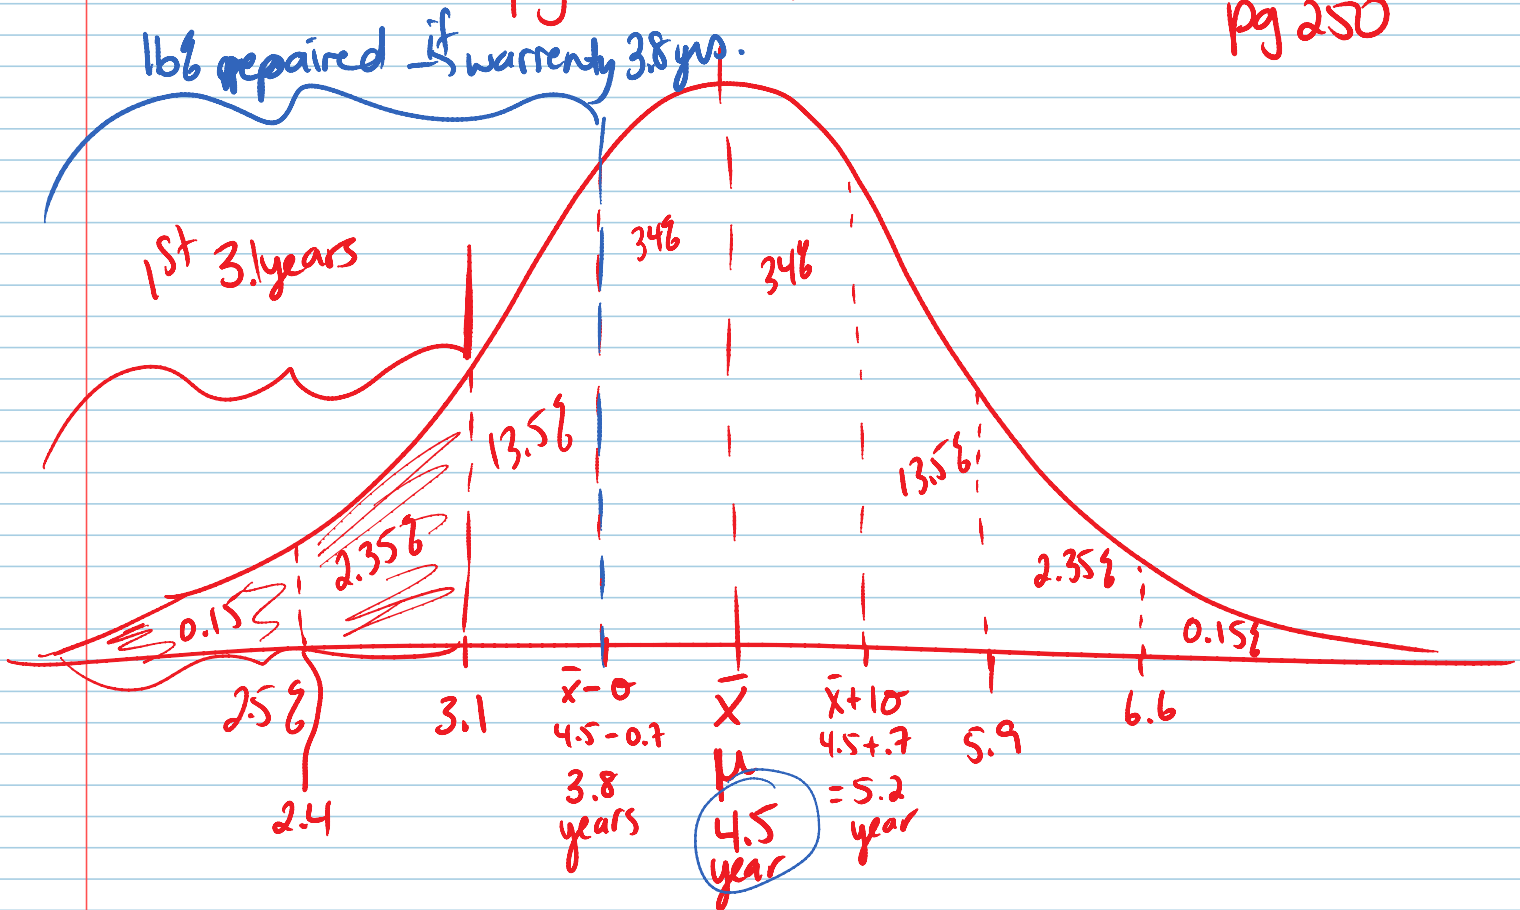 pg 250
16% repaired → if warrenty 3.8 yrs.
1st 3.1 years
34%
34%
13.5%
13.5%
2.35%
2.35%
0.15
0.15%
25%
3.1
x̄ - σ
4.5 - 0.7
3.8
years
2.4
x̄
μ
4.5
year
x̄ + 1σ
4.5 + .7
= 5.2
year
5.9
6.6